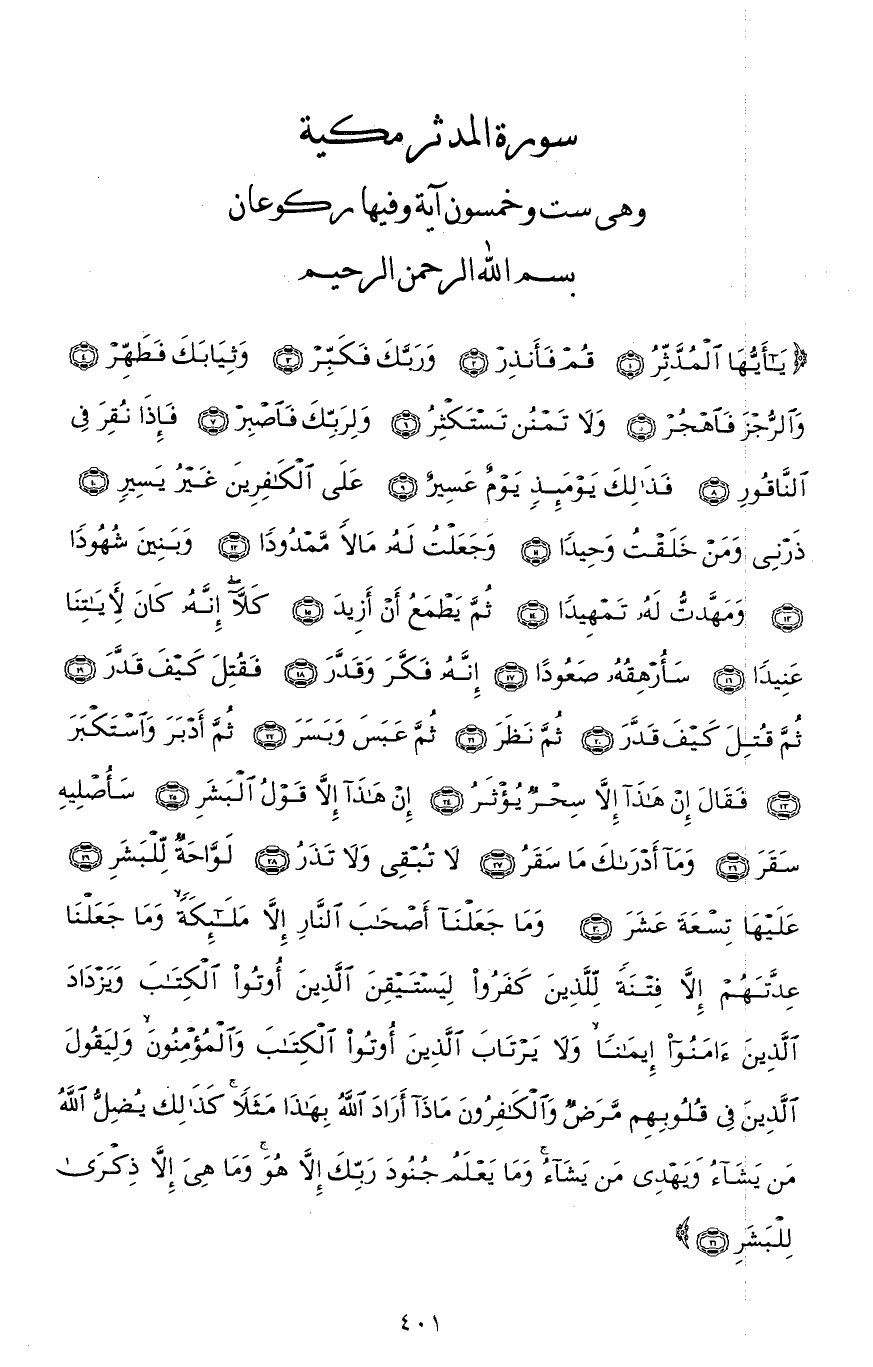 سورة المدثر مكية
وهى ست وخمسون آية وفيها ركوعان
بسم الله الرحمن الرحيم
﴿ يَـٰٓأَيُّهَا ٱلْمُدَّثِّرُ ١ قُمْ فَأَنذِرْ ٢ وَرَبَّكَ فَكَبِّرْ ٣ وَثِيَابَكَ فَطَهِّرْ ٤
وَٱلرُّجْزَ فَٱهْجُرْ ٥ وَلَا تَمْنُن تَسْتَكْثِرُ ٦ وَلِرَبِّكَ فَٱصْبِرْ ٧ فَإِذَا نُقِرَ فِى
ٱلنَّاقُورِ ٨ فَذَٰلِكَ يَوْمَئِذٍ يَوْمٌ عَسِيرٌ ٩ عَلَى ٱلْكَـٰفِرِينَ غَيْرُ يَسِيرٍ ١٠
ذَرْنِى وَمَنْ خَلَقْتُ وَحِيدًا ١١ وَجَعَلْتُ لَهُۥ مَالًا مَّمْدُودًا ١٢ وَبَنِينَ شُهُودًا
١٣ وَمَهَّدتُّ لَهُۥ تَمْهِيدًا ١٤ ثُمَّ يَطْمَعُ أَنْ أَزِيدَ ١٥ كَلَّآ ۖ إِنَّهُۥ كَانَ لِأَيَـٰتِنَا
عَنِيدًا ١٦ سَأُرْهِقُهُۥ صَعُودًا ١٧ إِنَّهُۥ فَكَّرَ وَقَدَّرَ ١٨ فَقُتِلَ كَيْفَ قَدَّرَ ١٩
ثُمَّ قُتِلَ كَيْفَ قَدَّرَ ٢٠ ثُمَّ نَظَرَ ٢١ ثُمَّ عَبَسَ وَبَسَرَ ٢٢ ثُمَّ أَدْبَرَ وَٱسْتَكْبَرَ
٢٣ فَقَالَ إِنْ هَـٰذَآ إِلَّا سِحْرٌ يُؤْثَرُ ٢٤ إِنْ هَـٰذَآ إِلَّا قَوْلُ ٱلْبَشَرِ ٢٥ سَأُصْلِيهِ
سَقَرَ ٢٦ وَمَآ أَدْرَىٰكَ مَا سَقَرُ ٢٧ لَا تُبْقِى وَلَا تَذَرُ ٢٨ لَوَّاحَةٌ لِّلْبَشَرِ ٢٩
عَلَيْهَا تِسْعَةَ عَشَرَ ٣٠ وَمَا جَعَلْنَآ أَصْحَـٰبَ ٱلنَّارِ إِلَّا مَلَـٰٓئِكَةً ۙ وَمَا جَعَلْنَا
عِدَّتَهُمْ إِلَّا فِتْنَةً لِّلَّذِينَ كَفَرُوا۟ لِيَسْتَيْقِنَ ٱلَّذِينَ أُوتُوا۟ ٱلْكِتَـٰبَ وَيَزْدَادَ
ٱلَّذِينَ ءَامَنُوٓا۟ إِيمَـٰنًا ۙ وَلَا يَرْتَابَ ٱلَّذِينَ أُوتُوا۟ ٱلْكِتَـٰبَ وَٱلْمُؤْمِنُونَ ۙ وَلِيَقُولَ
ٱلَّذِينَ فِى قُلُوبِهِم مَّرَضٌ وَٱلْكَـٰفِرُونَ مَاذَآ أَرَادَ ٱللَّهُ بِهَـٰذَا مَثَلًا ۚ كَذَٰلِكَ يُضِلُّ ٱللَّهُ
مَن يَشَآءُ وَيَهْدِى مَن يَشَآءُ ۚ وَمَا يَعْلَمُ جُنُودَ رَبِّكَ إِلَّا هُوَ ۚ وَمَا هِىَ إِلَّا ذِكْرَىٰ
لِلْبَشَرِ ٣١ ﴾
٤٠١